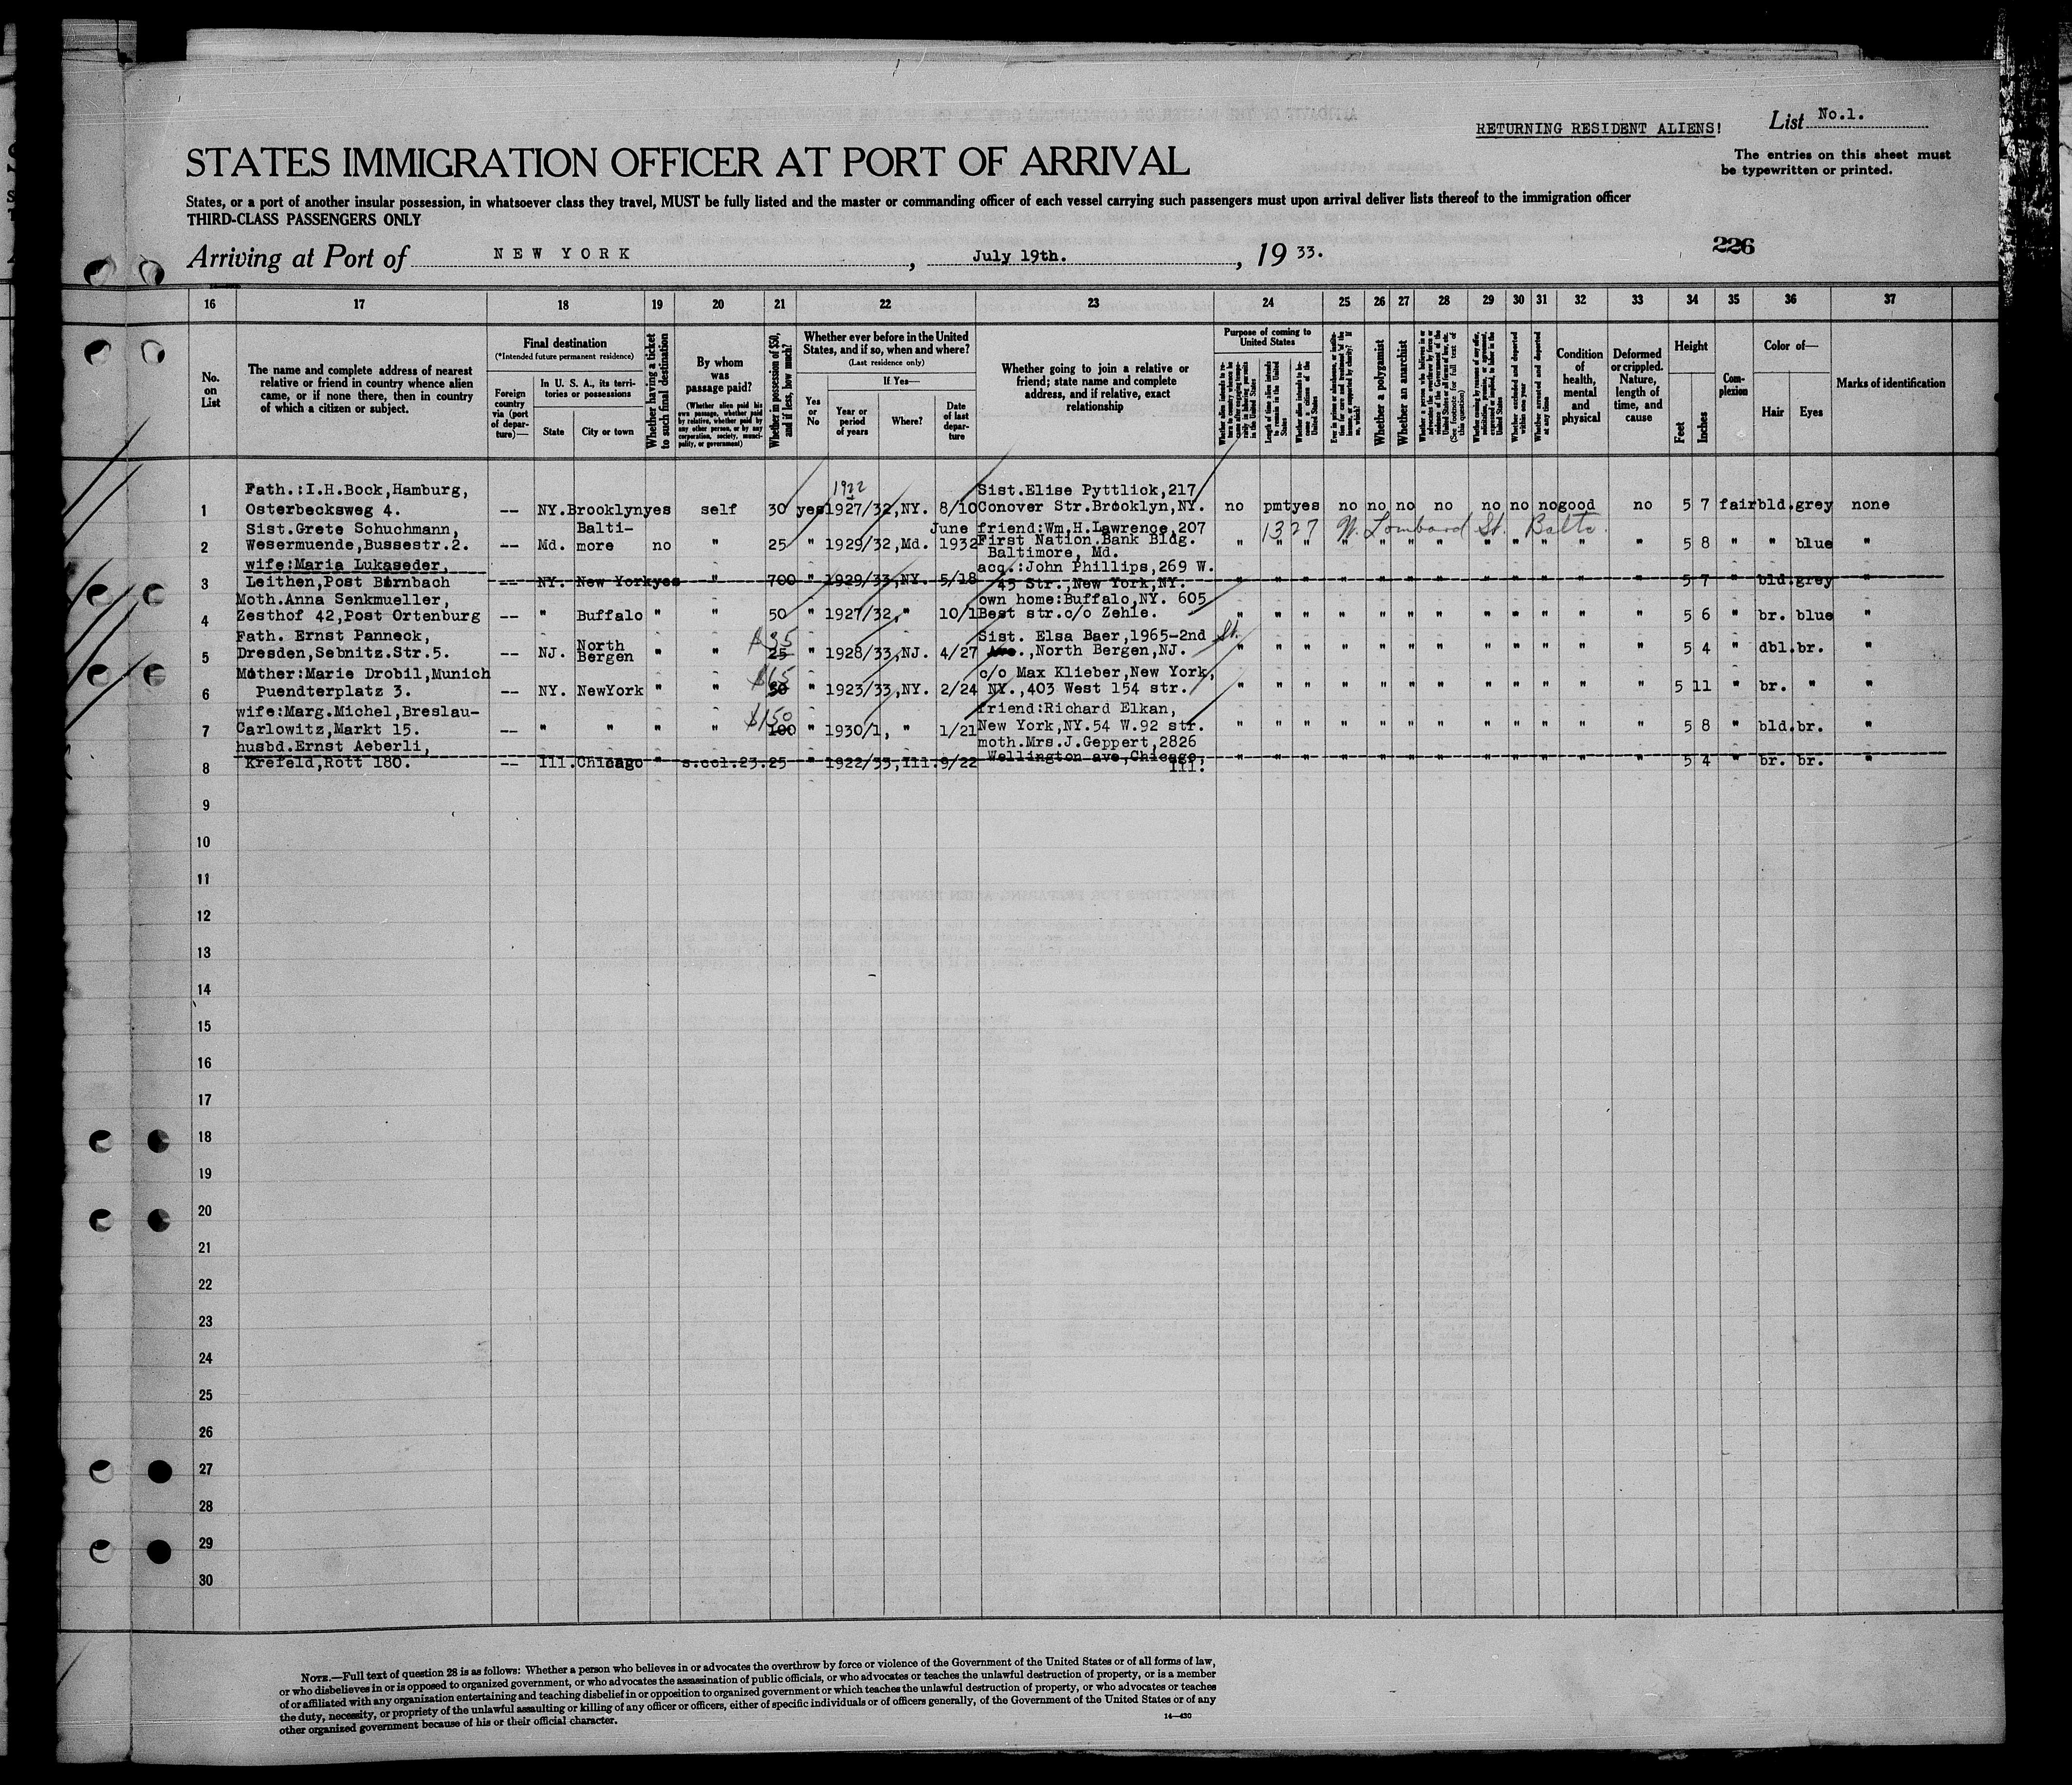 RETURNING RESIDENT ALIENS!
List No.1.
STATES IMMIGRATION OFFICER AT PORT OF ARRIVAL
The entries on this sheet must
be typewritten or printed.
States, or a port of another insular possession, in whatsoever class they travel, MUST be fully listed and the master or commanding officer of each vessel carrying such passengers must upon arrival deliver lists thereof to the immigration officer
THIRD-CLASS PASSENGERS ONLY
Arriving at Port of NEW YORK, July 19th., 1933.
226
16 17 18 19 20 21 22 23 24 25 26 27 28 29 30 31 32 33 34 35 36 37
No. on List
The name and complete address of nearest
relative or friend in country whence alien
came, or if none there, then in country
of which a citizen or subject.
Final destination
(*Intended future permanent residence)
Foreign country via (port of departure)—
In U. S. A., its territories or possessions
State
City or town
Whether having a ticket to such final destination
By whom was passage paid?
(Whether alien paid his own passage, whether paid by relative, whether paid by any other person, or by any corporation, society, municipality, or government)
Whether in possession of $50, and if less, how much?
Whether ever before in the United States, and if so, when and where?
(Last residence only)
Yes or No
If Yes—
Year or period of years
Where?
Date of last departure
Whether going to join a relative or
friend; state name and complete
address, and if relative, exact
relationship
Purpose of coming to United States
Length of time alien intends to remain in the United States
Whether alien intends to become a citizen of the United States
Whether a polygamist
Whether an anarchist
Whether arrested and deported at any time
Condition of health, mental and physical
Deformed or crippled. Nature, length of time, and cause
Height
Feet
Inches
Complexion
Color of—
Hair
Eyes
Marks of identification
Fath.:I.H.Bock,Hamburg, 1922 Sist.Elise Pyttlick,217
1 Osterbecksweg 4. -- NY. Brooklyn yes self 30 yes 1927/32,NY. 8/10 Conover Str.Brooklyn,NY. no pmt yes no no no no no no no good no 5 7 fair bld. grey none
Sist.Grete Schuchmann, Balti- June friend:Wm.H.Lawrence,207 1327 W. Lombard St. Balto.
2 Wesermuende,Bussestr.2. -- Md. more no " 25 " 1929/32,Md. 1932 First Nation.Bank Bldg. " " " " " " " " " " " " 5 8 " " blue "
Baltimore, Md.
wife:Maria Lukaseder, acq.:John Phillips,269 W.
3 Leithen,Post Birnbach -- NY. New York yes " 700 " 1929/33,NY. 5/18 45 Str.,New York,NY. " " " " " " " " " " " " 5 7 " bld. grey "
Moth.Anna Senkmueller, own home:Buffalo,NY. 605
4 Zesthof 42,Post Ortenburg -- " Buffalo " " 50 " 1927/32, " 10/1 Best str.c/o Zehle. " " " " " " " " " " " " 5 6 " br. blue "
Fath. Ernst Panneck, North $35 Sist. Elsa Baer,1965-2nd St.
5 Dresden,Sebnitz.Str.5. -- NJ. Bergen " " 25 " 1928/33,NJ. 4/27 Ave.,North Bergen,NJ. " " " " " " " " " " " " 5 4 " dbl. br. "
Mother:Marie Drobil,Munich $65 c/o Max Klieber,New York,
6 Puendterplatz 3. -- NY. NewYork " " 50 " 1923/33,NY. 2/24 NY.,403 West 154 str. " " " " " " " " " " " " 5 11 " br. " "
wife:Marg.Michel,Breslau- $150 friend:Richard Elkan,
7 Carlowitz,Markt 15. -- " " " " 100 " 1930/1, " 1/21 New York,NY.54 W.92 str. " " " " " " " " " " " " 5 8 " bld. br. "
husbd.Ernst Aeberli, moth.Mrs.J.Geppert,2826
8 Krefeld,Rott 180. -- Ill. Chicago " s.col.23. 25 " 1922/33,Ill. 9/22 Wellington ave,Chicago, " " " " " " " " " " " " 5 4 " br. br. "
Ill.
9
10
11
12
13
14
15
16
17
18
19
20
21
22
23
24
25
26
27
28
29
30
NOTE.—Full text of question 28 is as follows: Whether a person who believes in or advocates the overthrow by force or violence of the Government of the United States or of all forms of law,
or who disbelieves in or is opposed to organized government, or who advocates the assassination of public officials, or who advocates or teaches the unlawful destruction of property, or is a member
of or affiliated with any organization entertaining and teaching disbelief in or opposition to organized government or which teaches the unlawful destruction of property, or who advocates or teaches
the duty, necessity, or propriety of the unlawful assaulting or killing of any officer or officers, either of specific individuals or of officers generally, of the Government of the United States or of any
other organized government because of his or their official character.
14—430